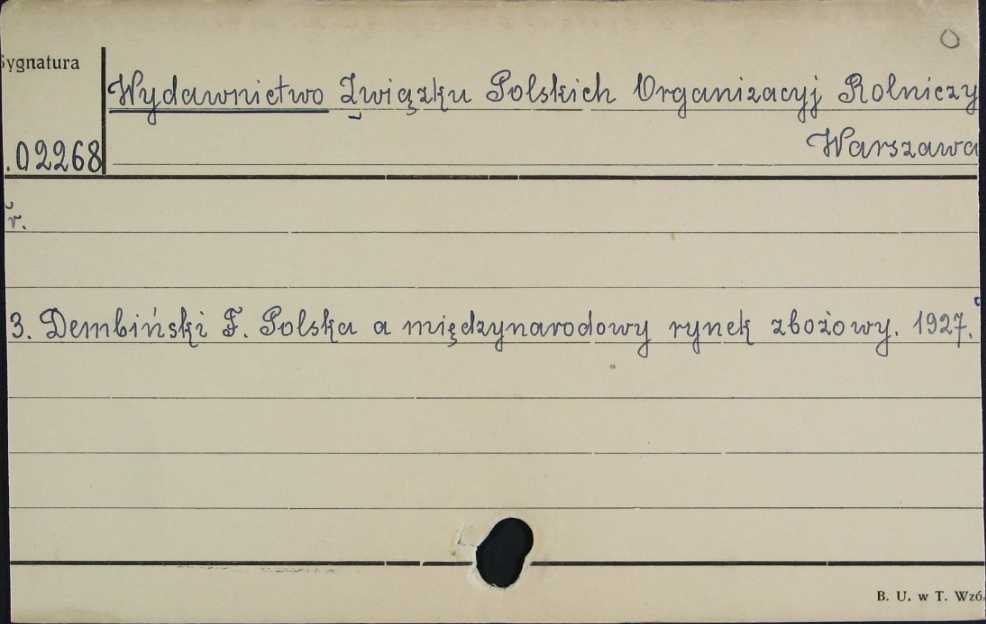 Sygnatura
Wydawnictwo Związku Polskich Organizacyj Rolniczy
.02268
Warszawa
r.
3. Dembiński F. Polska a międzynarodowy rynek zbożowy. 1927.
B. U. w T. Wzó